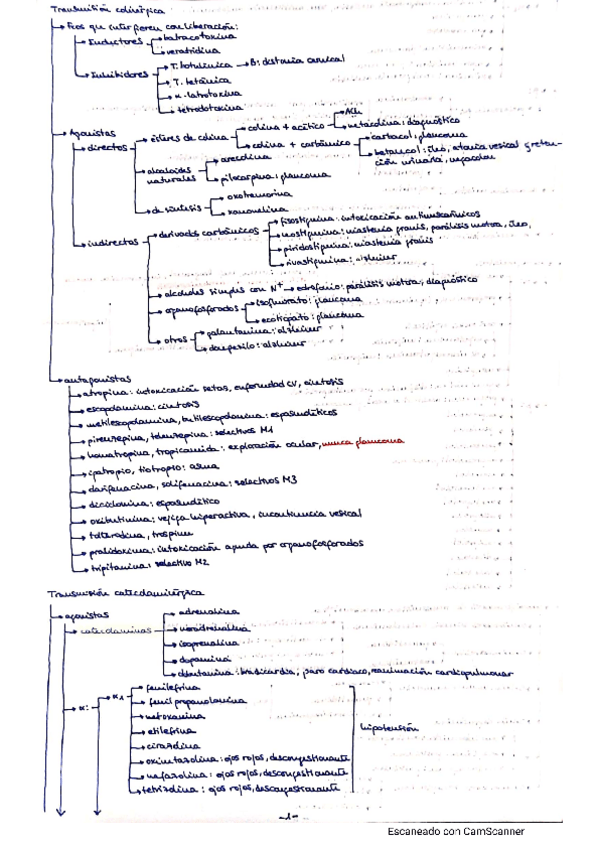 Transmisión colinérgica
Fcos que interfieren con liberación:
Inductores
batracotoxina
veratridina
Inhibidores
T. botulínica → B: distonía cervical
T. tetánica
α-latrotoxina
tetrodotoxina
Agonistas
directos
ésteres de colina
colina + acético
ACh
metacolina: diagnóstico
colina + carbámico
carbacol: glaucoma
betanecol: íleo, atonía vesical y retención urinaria, megacolon
alcaloides naturales
arecolina
pilocarpina: glaucoma
de síntesis
oxotremorina
xanomelina
indirectos
derivados carbámicos
fisostigmina: intoxicación antimuscarínicos
neostigmina: miastenia gravis, parálisis motora, íleo,
piridostigmina: miastenia gravis
rivastigmina: alzheimer
alcoholes simples con N+ → edrofonio: parálisis motora, diagnóstico
organofosforados
isoflurato: glaucoma
ecotiopato: glaucoma
otros
galantamina: alzheimer
donepezilo: alzheimer
antagonistas
atropina: intoxicación setas, enfermedad CV, cinetosis
escopolamina: cinetosis
metilescopolamina, butilescopolamina: espasmolíticos
pirenzepina, telenzepina: selectivos M1
homatropina, tropicamida: exploración ocular, nunca glaucoma
ipatropio, tiotropio: asma
darifenacina, solifenacina: selectivos M3
diciclomina: espasmolítico
oxibutinina: vejiga hiperactiva, incontinencia vesical
tolterodina, trospium
pralidoxima: intoxicación aguda por organofosforados
tripitamina: selectivo M2
Transmisión catecolaminérgica
agonistas
catecolaminas
adrenalina
noradrenalina
isoprenalina
dopamina
dobutamina: bradicardia, paro cardíaco, reanimación cardiopulmonar
α:
α1
fenilefrina
fenilpropanolamina
metoxamina
etilefrina
cirazolina
oximetazolina: ojos rojos, descongestionante
nafazolina: ojos rojos, descongestionante
tetrizolina: ojos rojos, descongestionante
hipotensión
-1-
Escaneado con CamScanner